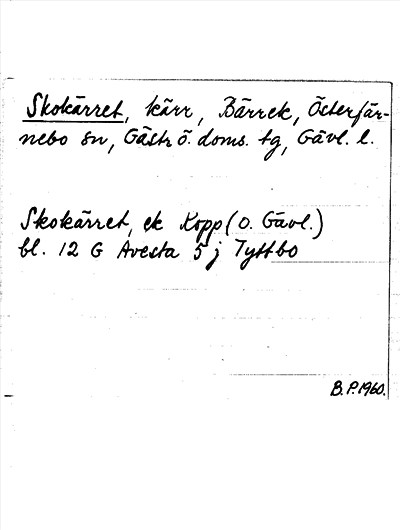 Skokärret, kärr, Bärrek, Österfär-
nebo sn, Gästr ö. doms. tg, Gävl. l.
Skokärret, ek Kopp (o. Gävl.)
bl. 12 G Avesta 5 j Tyttbo
B.P. 1960.